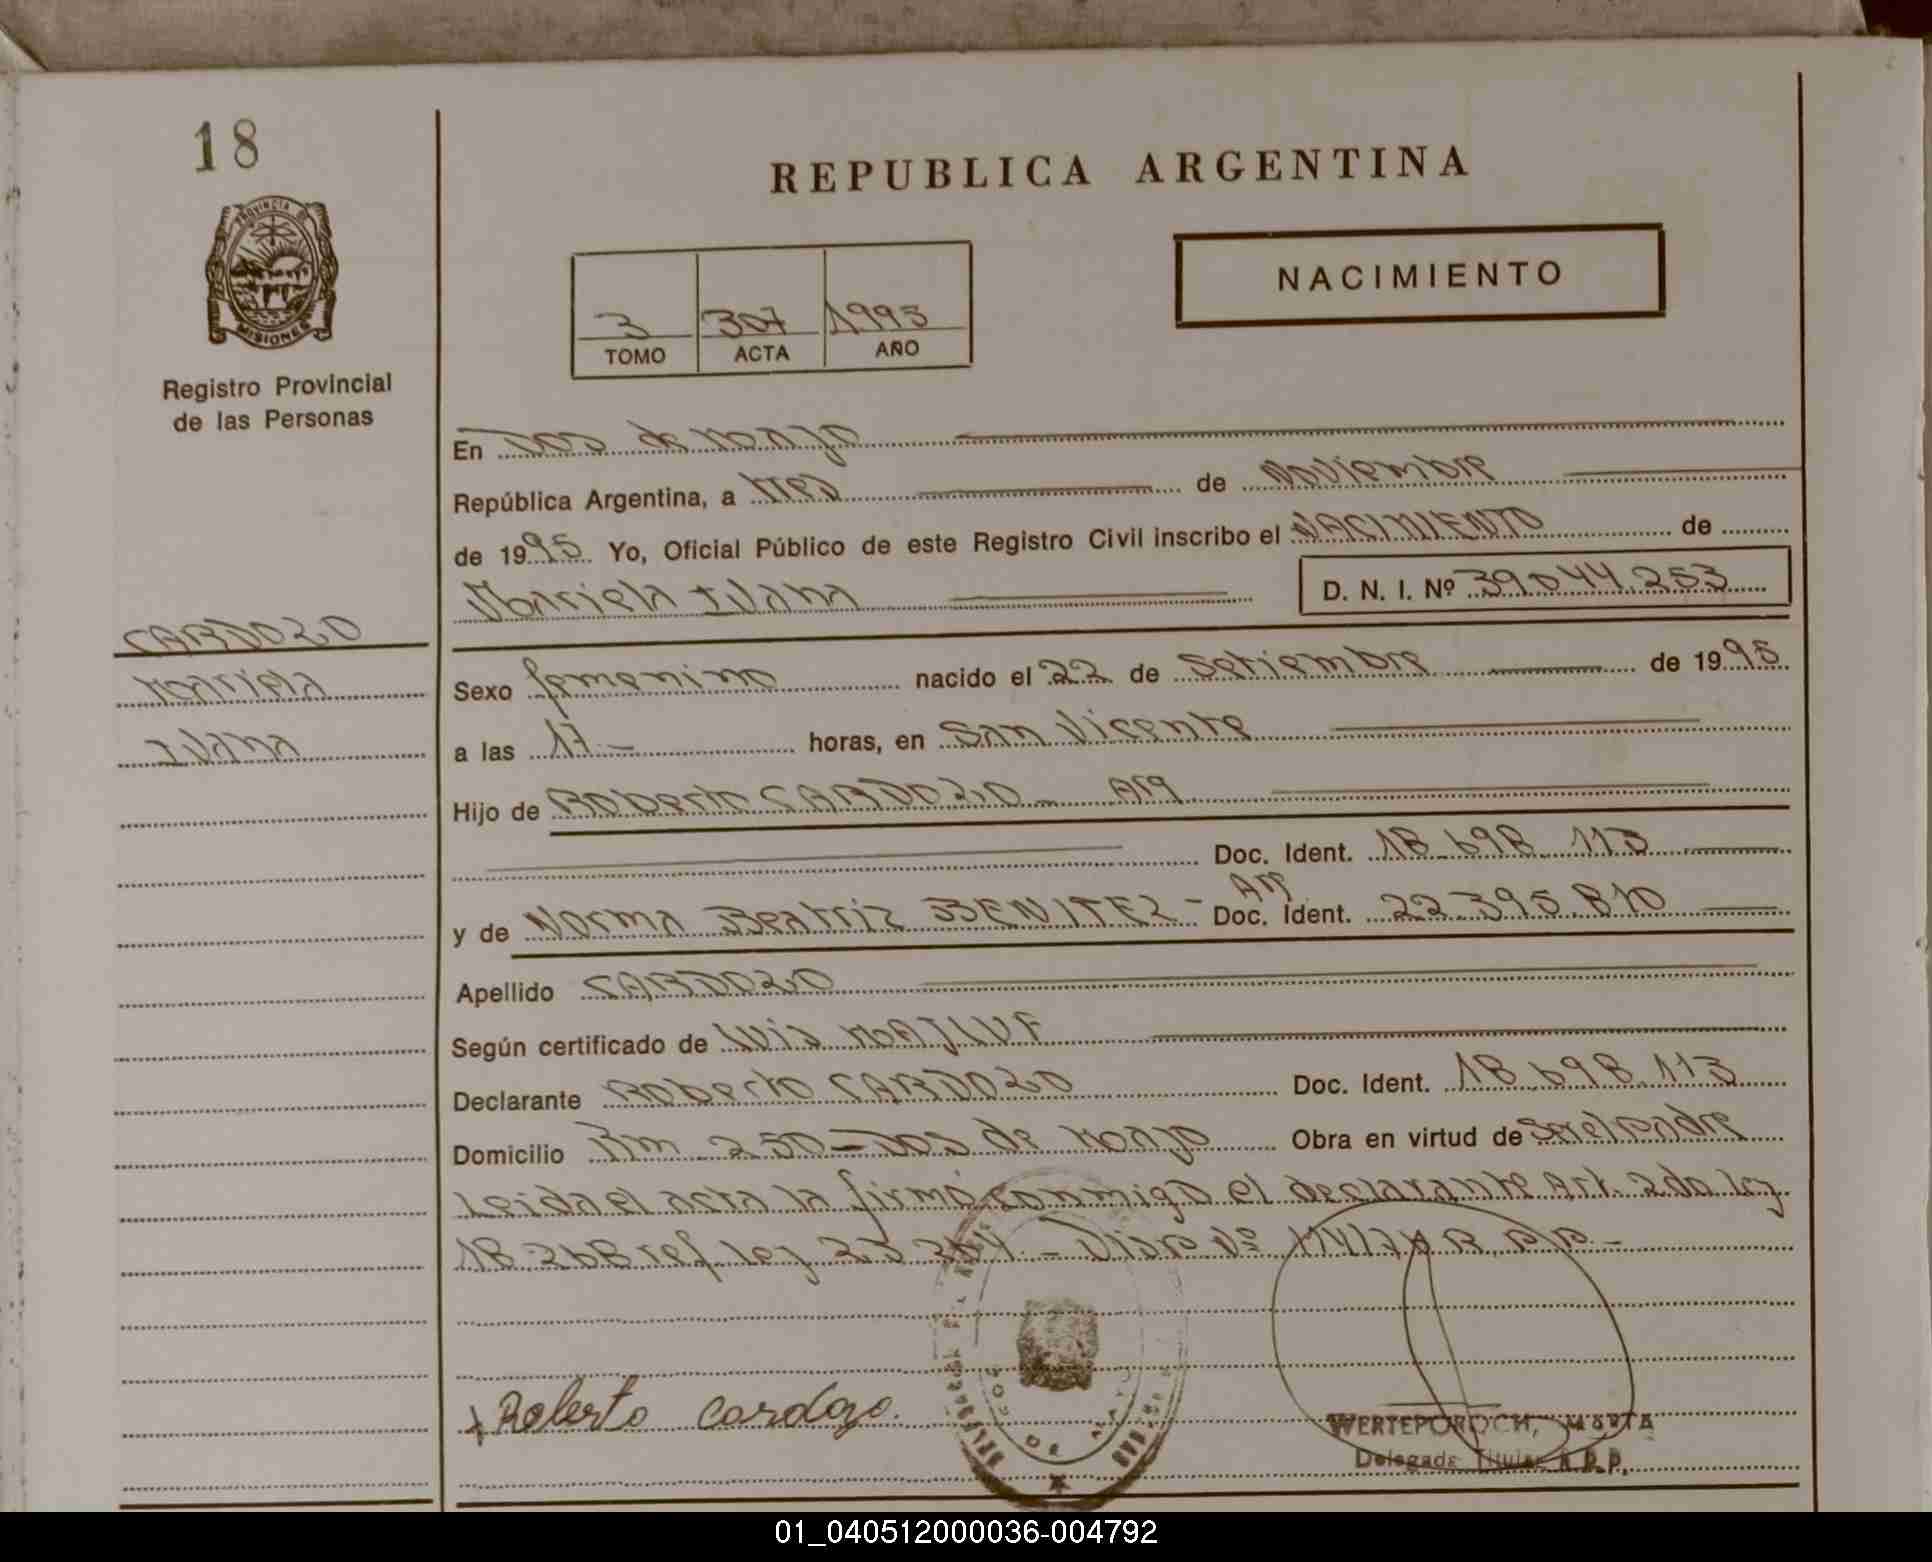 18
REPUBLICA ARGENTINA
PROVINCIA DE
MISIONES
Registro Provincial
de las Personas
NACIMIENTO
3 307 1995
TOMO ACTA AÑO
En Dos de Mayo
República Argentina, a tres de Noviembre
de 1995 Yo, Oficial Público de este Registro Civil inscribo el NACIMIENTO de
Mariela Ivana D. N. I. Nº 39.044.253
CARDOZO
Mariela
Ivana
Sexo femenino nacido el 22 de Setiembre de 1995
a las 17 horas, en San Vicente
Hijo de Roberto CARDOZO - Arg
Doc. Ident. 18.698.113
y de Norma Beatriz BENITEZ - Arg Doc. Ident. 22.395.810
Apellido CARDOZO
Según certificado de Luis MAJLUF
Declarante Roberto CARDOZO Doc. Ident. 18.698.113
Domicilio Km 250 - Dos de Mayo Obra en virtud de Ser el padre
Leida el acta la firmó conmigo el declarante Art. 2do Ley
18.268 ref. Ley 23.264 -
Roberto Cardozo.
WERTEPOROCH, MARTA
Delegada Titular R.P.P.
01_040512000036-004792